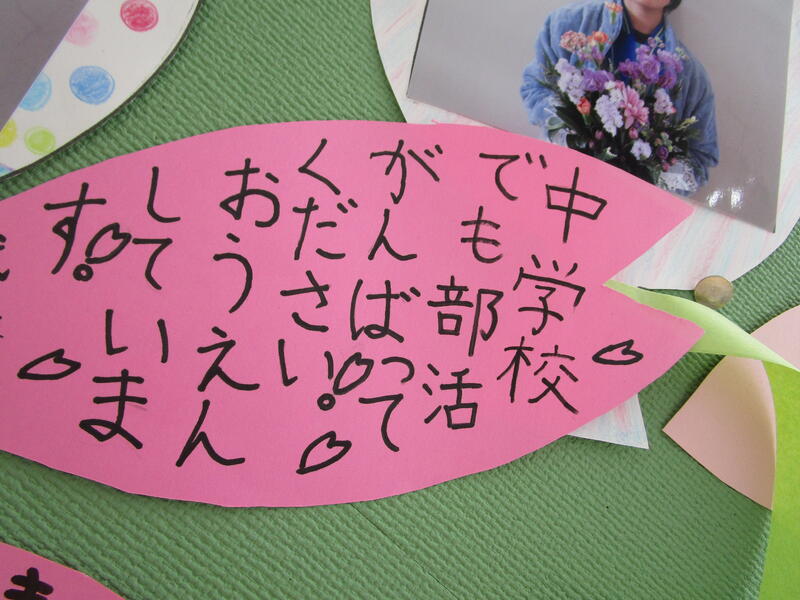 中学校
でも部活
がんばって
ください。
おうえん
していま
す。